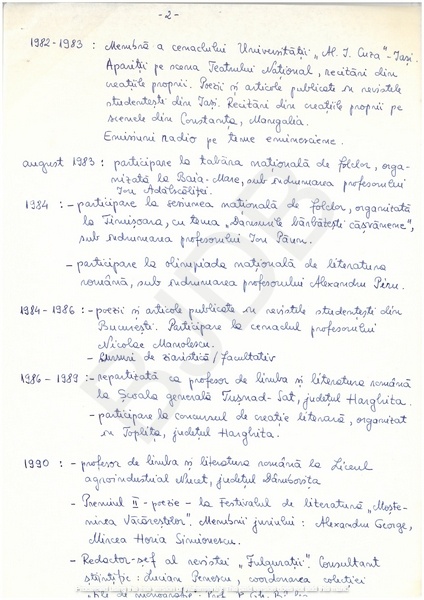 - 2 -
1982-1983 : Membră a cenaclului Universității „Al. I. Cuza" - Iași.
Apariții pe scena Teatrului Național, recitări din
creațiile proprii. Poezii și articole publicate în revistele
studentești din Iași. Recitări din creațiile proprii pe
scenele din Constanța, Mangalia.
Emisiuni radio pe teme eminesciene.
august 1983 : participare la tabăra națională de folclor, orga-
nizată la Baia-Mare, sub îndrumarea profesorului
Ion
1984 : - participare la sesiunea națională de folclor, organizată
la Timișoara, cu tema „Dansurile bărbătești
sub îndrumarea profesorului Ion
- participare la olimpiada națională de literatura
română, sub îndrumarea profesorului Alexandru Piru.
1984-1986 : - poezii și articole publicate în revistele studentești din
București. Participare la cenaclul profesorului
Nicolae Manolescu.
- Cursuri de ziaristică / facultativ
1986-1989 : - repartizată ca profesor de limba și literatura română
la Școala generală Tușnad-Sat, județul Harghita.
- participare la concursul de creație literară, organizat
în Toplița, județul Harghita.
1990 : - profesor de limba și literatura română la Liceul
agroindustrial Nucet, județul Dâmbovița
- Premiul II - poezie - la Festivalul de literatură „Moște-
nirea Văcăreștilor". Membrii juriului : Alexandru George,
Mircea Horia Simionescu.
- Redactor-șef al revistei „Fulgurații". Consultant
științific : Lucian Penescu, coordonarea